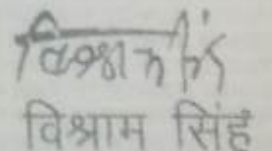 विश्राम सिंह
विश्राम सिंह